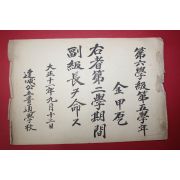 第六學級第五學年
金甲㐗
右者第二學期間
副級長ヲ命ス
大正十三年九月十三日
達城公立普通學校